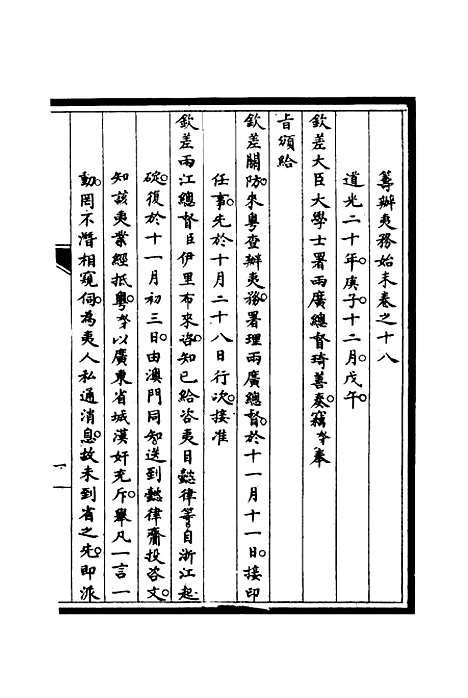 籌辦夷務始末卷之十八
道光二十年庚子十二月戊午
欽差大臣大學士署兩廣總督琦善奏竊奴才奉
旨頒給
欽差關防來粵查辦夷務署理兩廣總督於十一月十一日接印
任事先於十月二十八日行次接准
欽差兩江總督臣伊里布來咨知已給咨夷目懿律等自浙江起
碇復於十一月初三日由澳門同知送到懿律齎投咨文
知該夷業經抵粵奴才以廣東省城漢奸充斥舉凡一言一
動罔不潛相窺伺為夷人私通消息故未到省之先即派
一